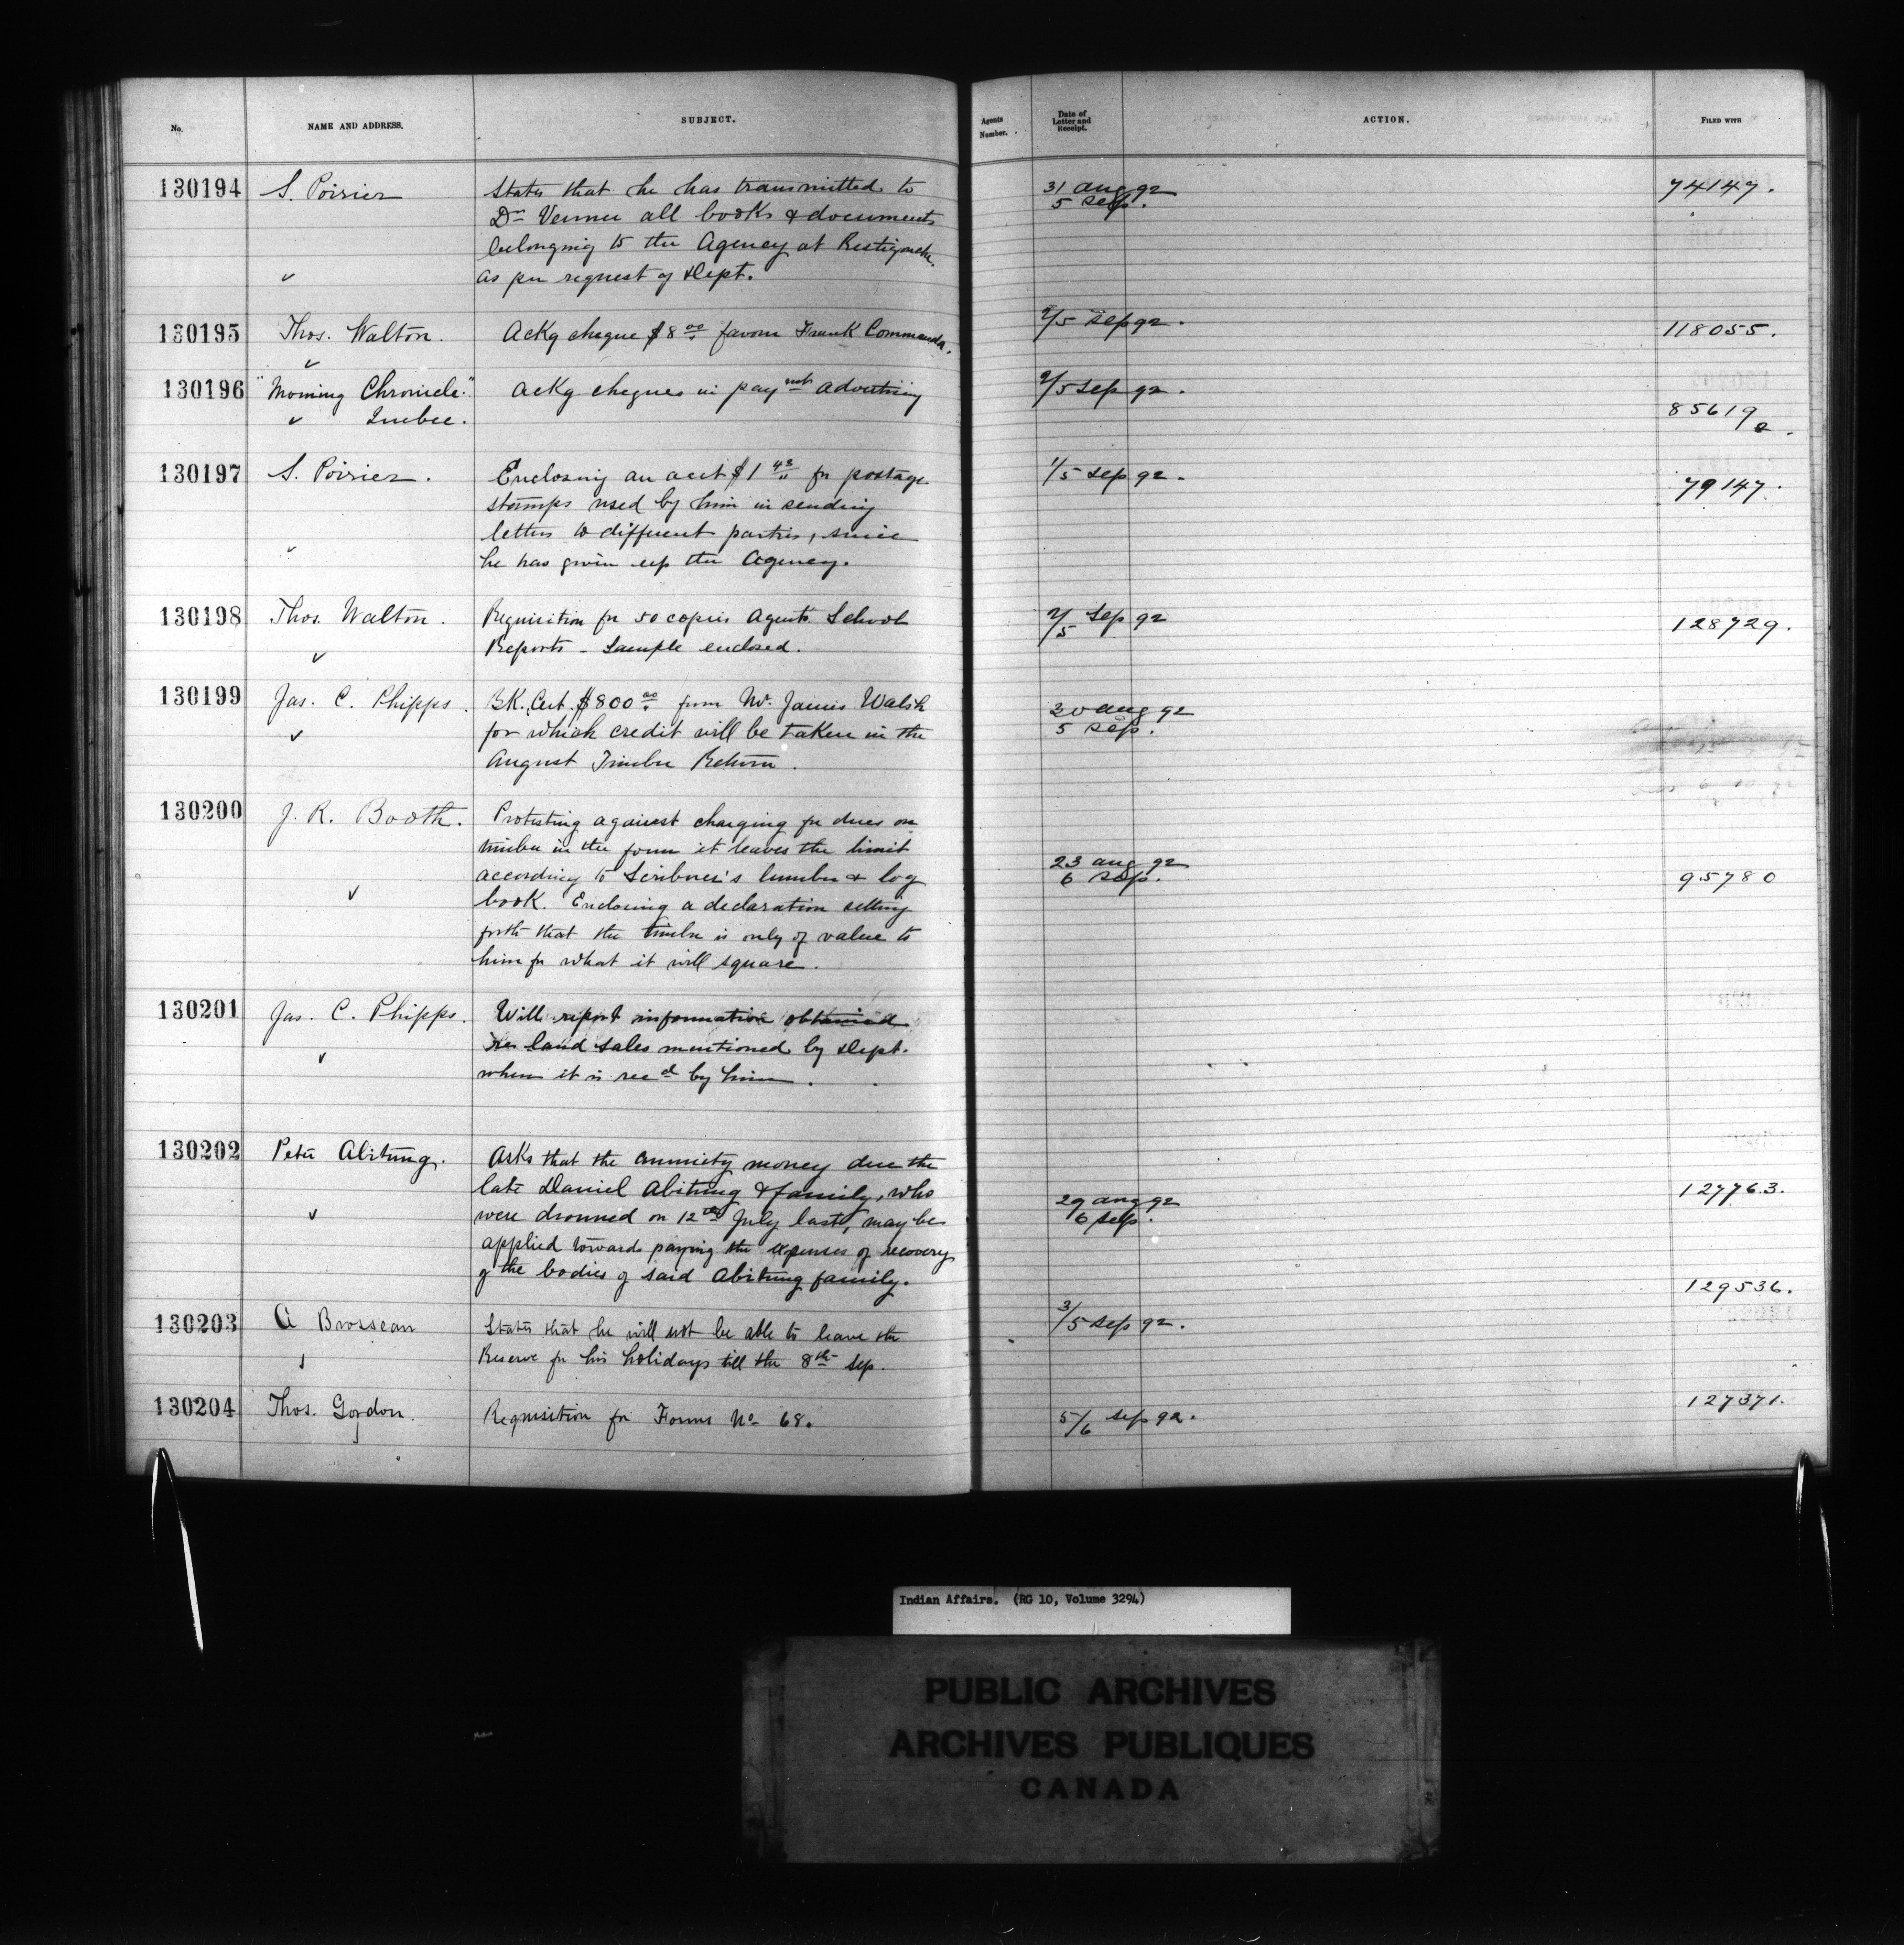 No. NAME AND ADDRESS. SUBJECT. Agents Number. Date of Letter and Receipt. ACTION. FILED WITH
130194 S. Poirier States that he has transmitted to 31 aug 92 74147.
Dr Venner all books & documents 5 sep.
belonging to the Agency at Restigouche.
✓ as per request of Dept.
130195 Thos. Walton. Ackg cheque $8 00 favour Frank Commanda. 2/5 sep 92. 118055.
✓
130196 "Morning Chronicle." Ackg cheques in paynt advertising 2/5 sep 92.
✓ Quebec. 85619 2.
130197 S. Poirier. Enclosing an acct $1 43 for postage 1/5 sep 92. 79147.
stamps used by him in sending
letters to different parties, since
✓ he has given up the Agency.
130198 Thos. Walton. Requisition for 50 copies Agents School 2/5 Sep 92 128729.
✓ Reports - Sample enclosed.
130199 Jas. C. Phipps. BK. Cert. $800 00 from Mr. James Walsh 30 aug 92
✓ for which credit will be taken in the 5 sep.
August Timber Return.
130200 J. R. Booth. Protesting against charging for dues on
timber in the form it leaves the limit
according to Scribner's lumber & log 23 aug 92 95780
✓ book. Enclosing a declaration setting 6 sep.
forth that the timber is only of value to
him for what it will square.
130201 Jas. C. Phipps. Will report information obtained
✓ re land sales mentioned by Dept.
when it is recd by him.
130202 Peter Abitung. Asks that the annuity money due the
late Daniel Abitung & family, who 29 aug 92 127763.
✓ were drowned on 12th July last, may be 6 sep.
applied towards paying the expenses of recovery
of the bodies of said Abitung family. 129536.
130203 A Brosseau States that he will not be able to leave the 3/5 sep 92.
✓ Reserve for his holidays till the 8th Sep.
130204 Thos. Gordon. Requisition for Forms No 68. 5/6 sep 92. 127371.
Indian Affairs. (RG 10, Volume 3294)
PUBLIC ARCHIVES
ARCHIVES PUBLIQUES
CANADA